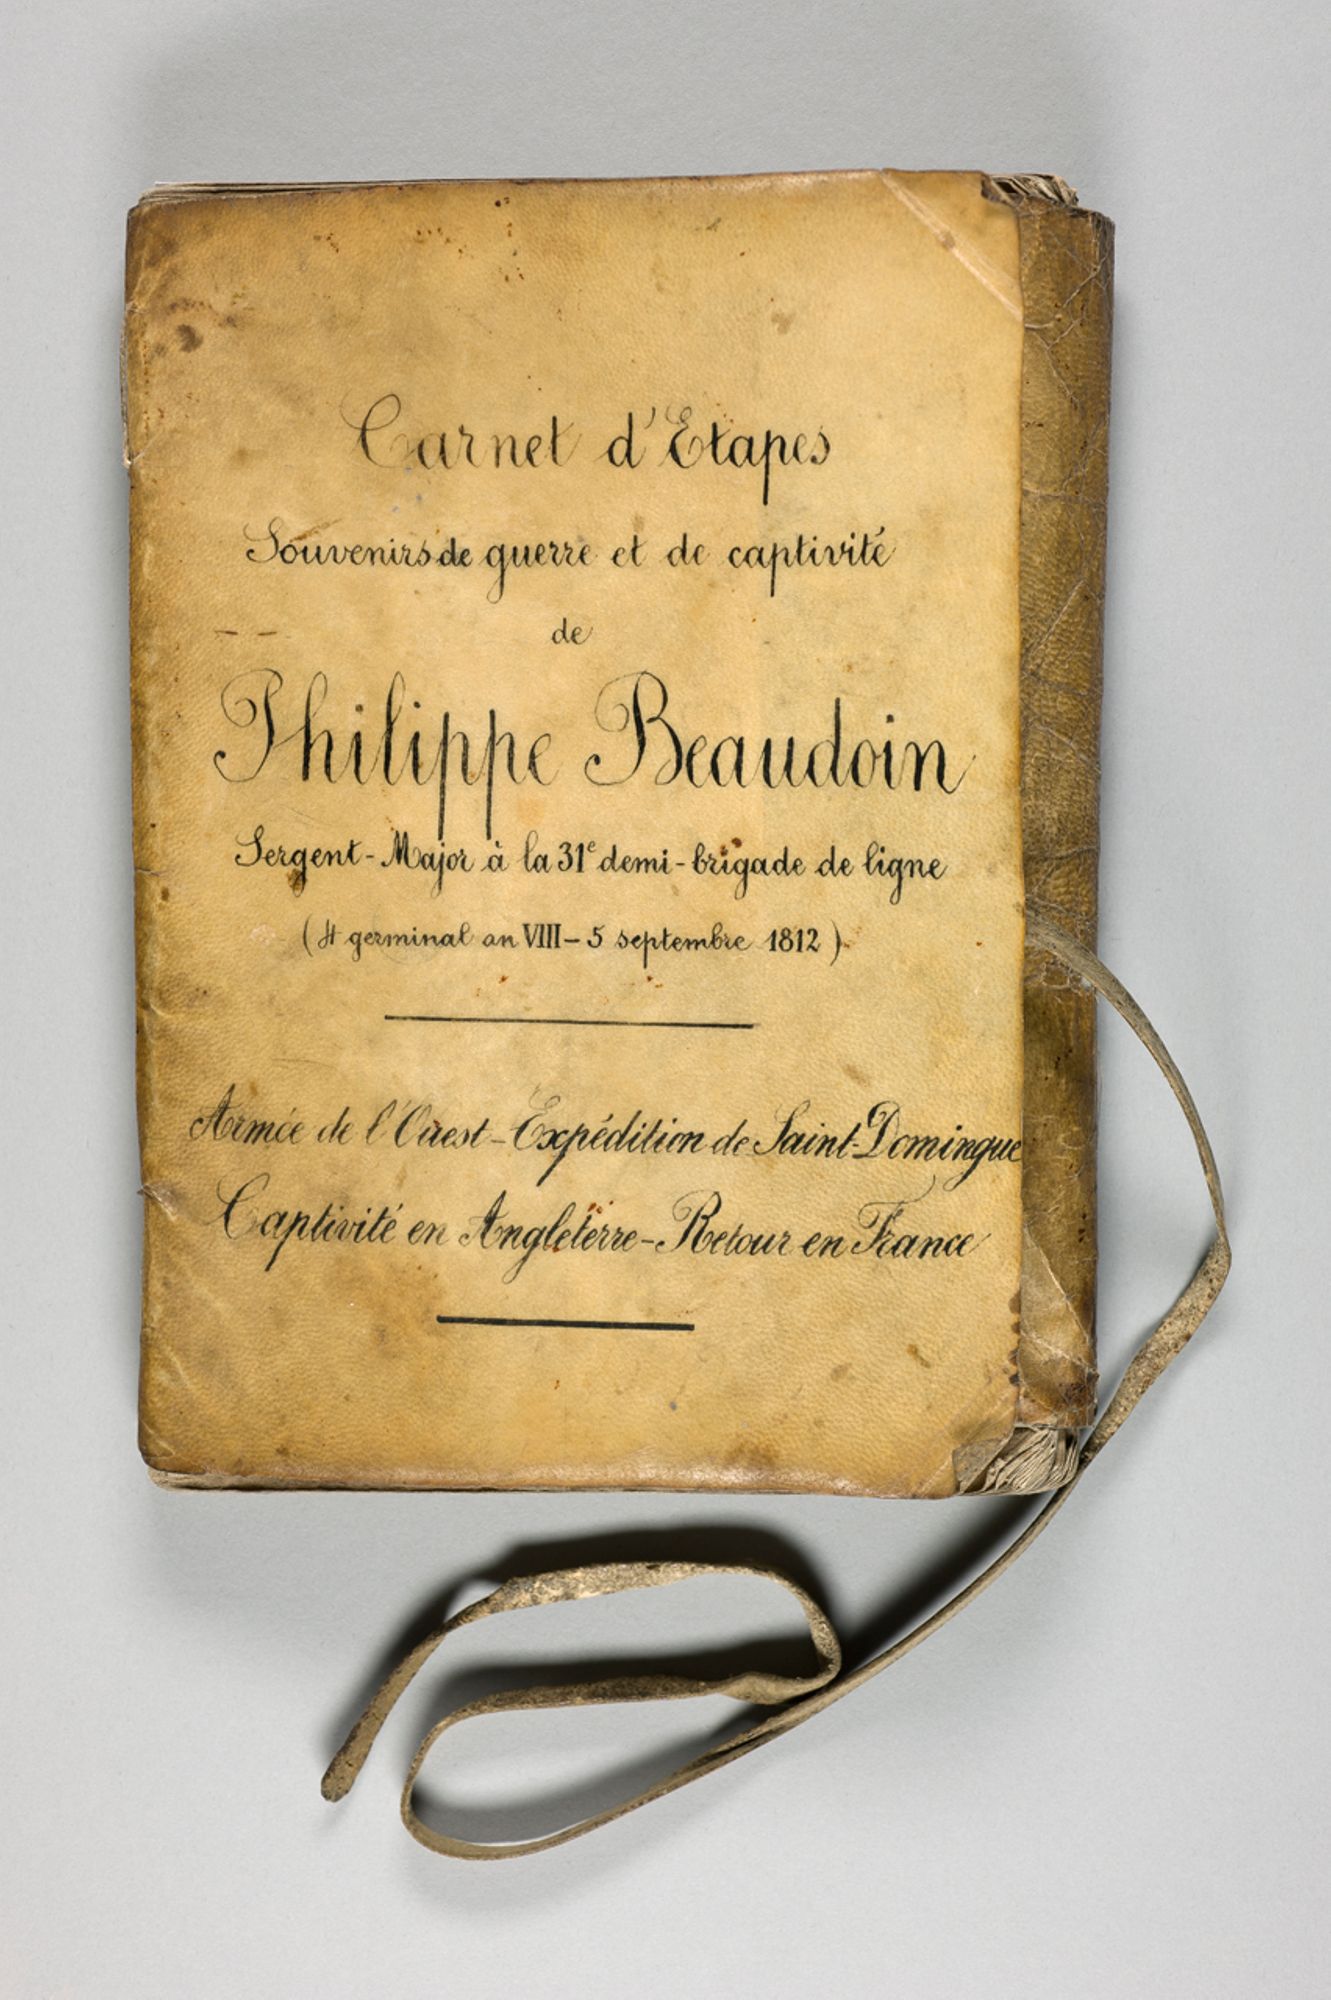 Carnet d'Etapes
Souvenirs de guerre et de captivité
de
Philippe Beaudoin
Sergent-Major à la 31e demi-brigade de ligne
(4 germinal an VIII – 5 septembre 1812)
Armée de l'Ouest – Expédition de Saint-Domingue
Captivité en Angleterre – Retour en France